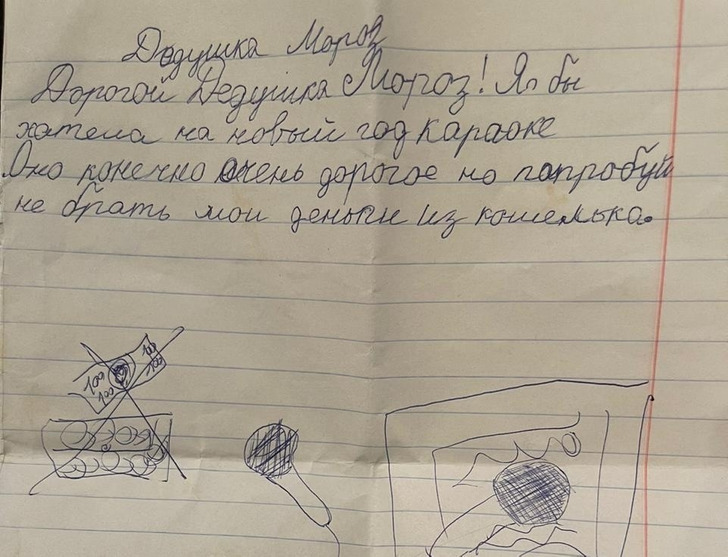 Дедушка Мороз
Дорогой Дедушка Мороз! Я бы
хатела на новый год караоке
Оно конечно очень дорогое но папробуй
не брать мои деньги из кошелька.
100 100
100 100